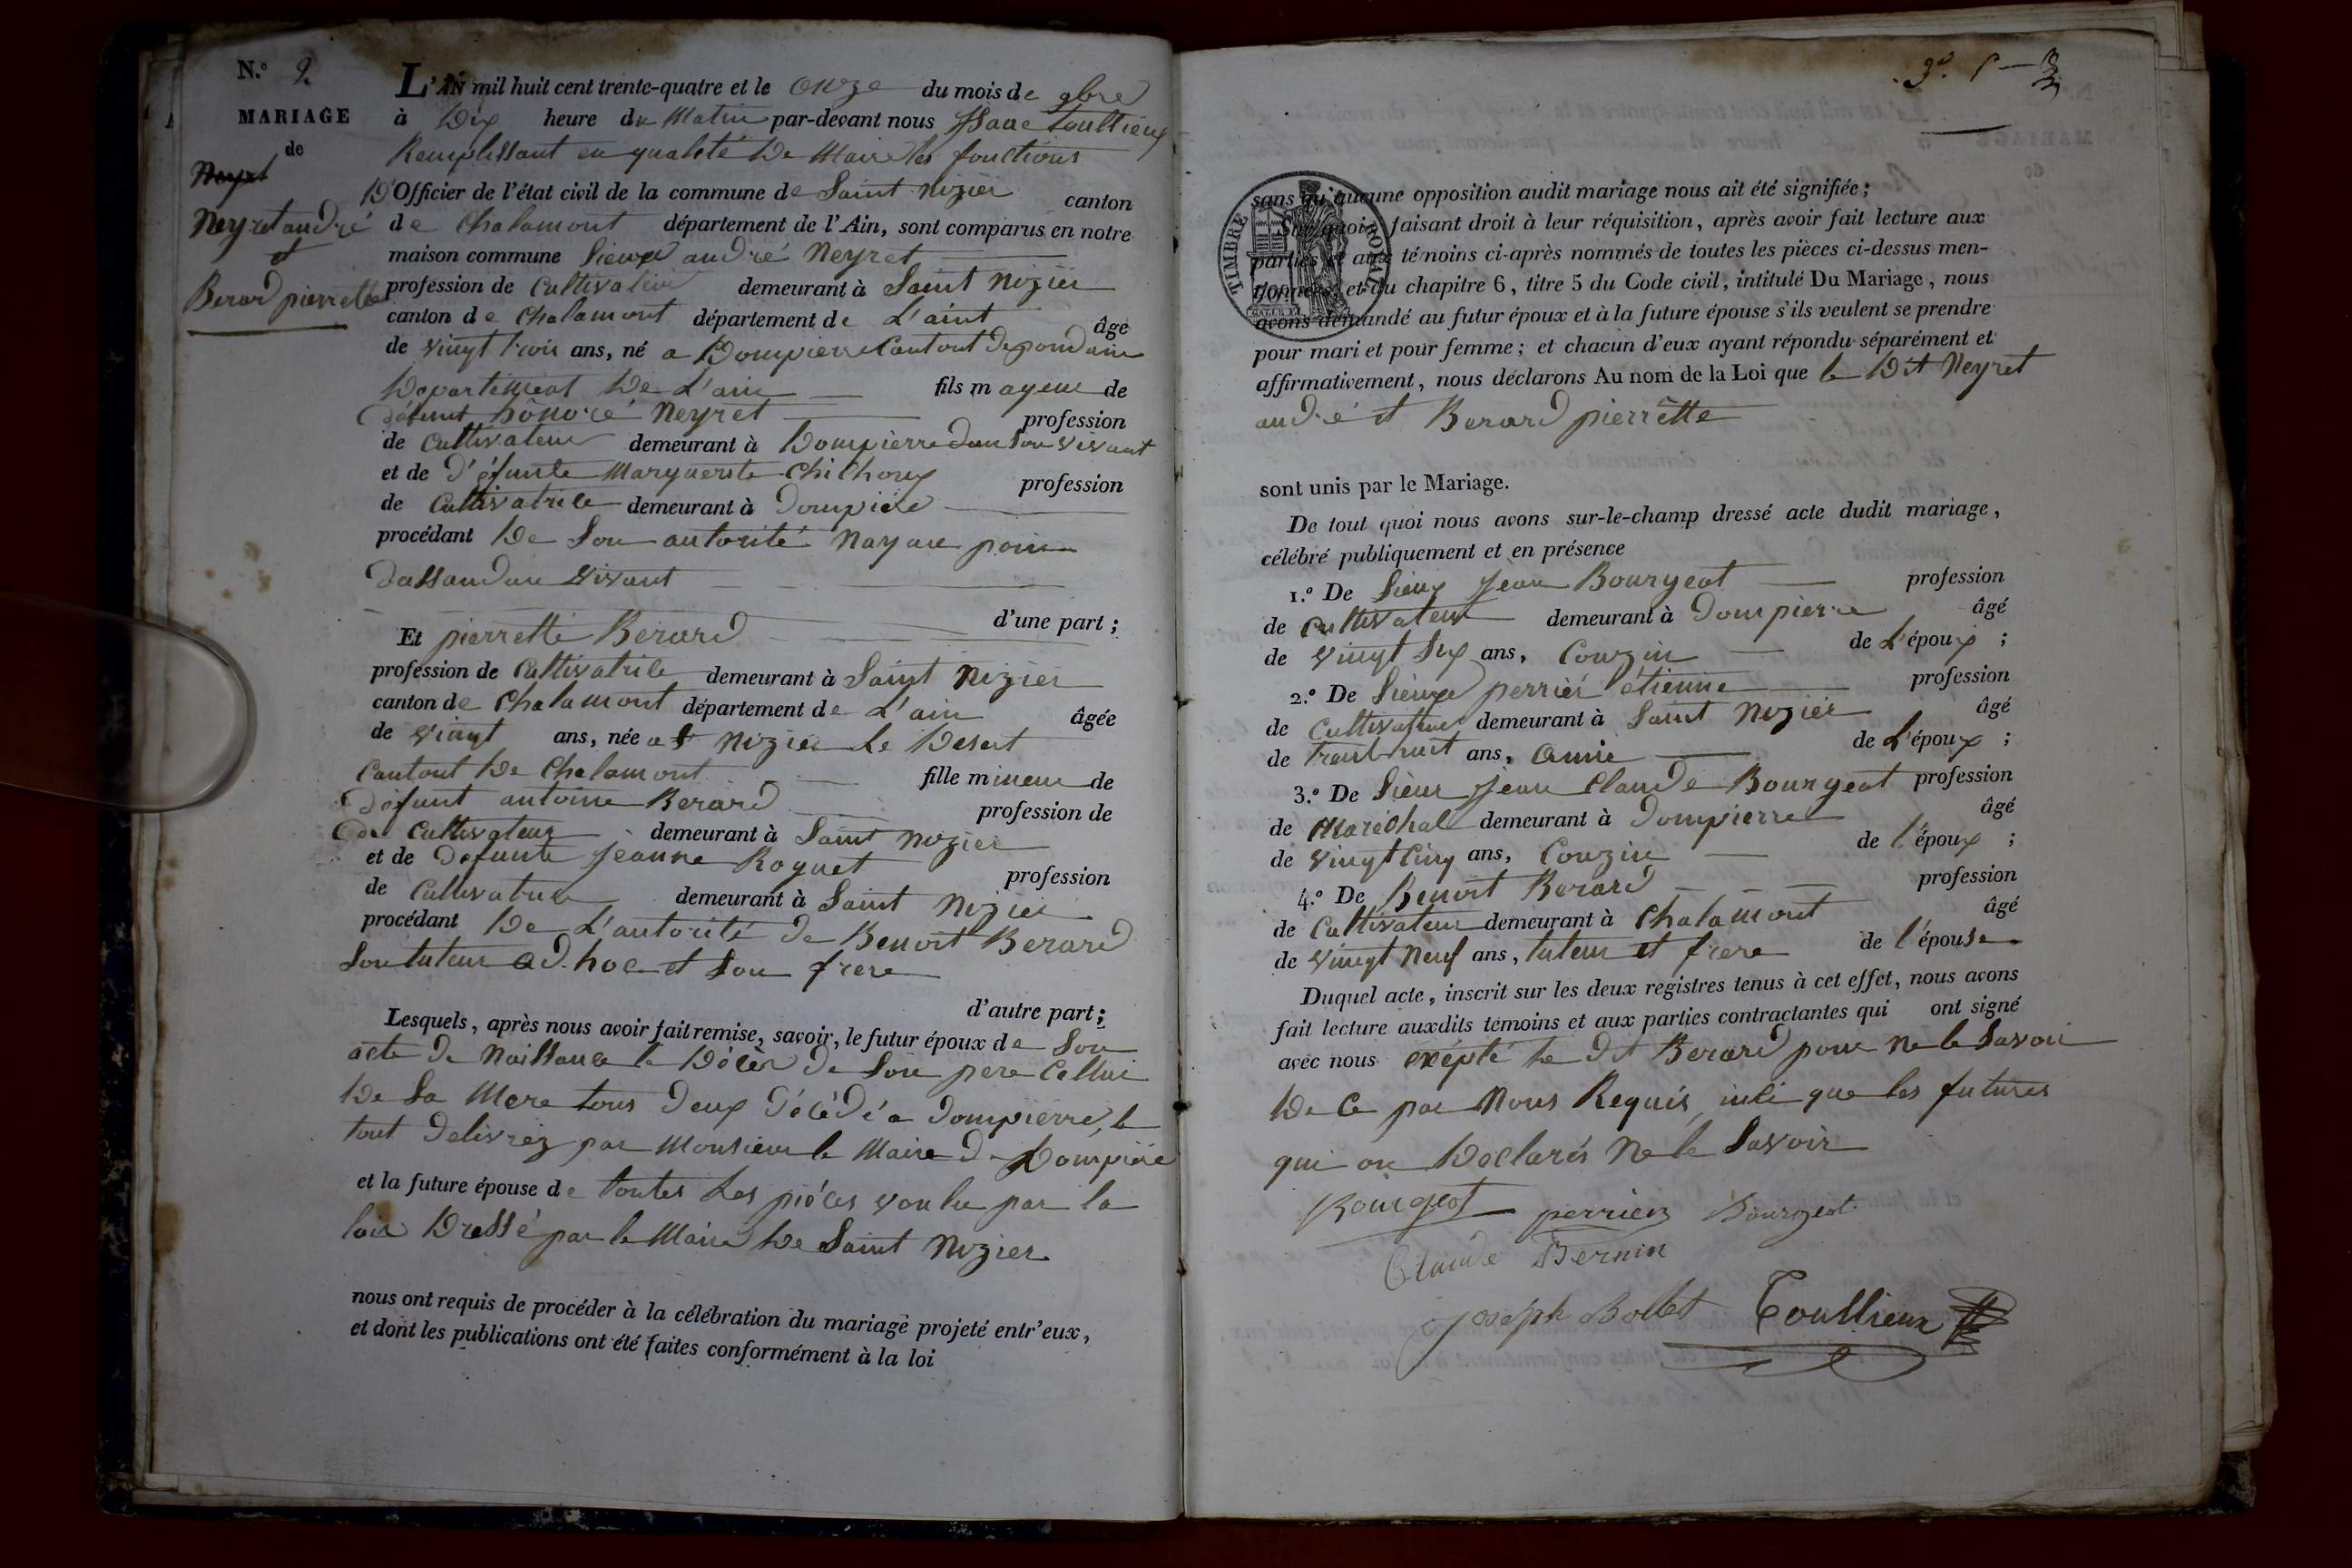 N.º 2
MARIAGE
de
Neyret
Neyret andré
et
Berard pierrette
L'AN mil huit cent trente-quatre et le onze du mois de 9bre
à Dix heure du Matin par-devant nous Isaac Toullieux
Remplissant en qualité De Maire les fonctions
D'Officier de l'état civil de la commune de Saint nizier canton
de Chalamont département de l'Ain, sont comparus en notre
maison commune Sieur andré Neyret
profession de Cultivateur demeurant à Saint Nizier
canton de Chalamont département de L'aint âgé
de vingt trois ans, né a Dompierre Cantont Depondain
Departement De L'ain fils mayeur de
défunt honoré Neyret profession
de Cultivateur demeurant à Dompierre dans Son vivant
et de D'éfunte Marguerite Chilhoux profession
de Cultivatrice demeurant à Dompière
procédant De Son autorité Nayant poin
Dassandan vivant
d'une part ;
Et pierrette Berard
profession de Cultivatrice demeurant à Saint Nizier
canton de Chalamont département de L'ain âgée
de vingt ans, née a St Nizier le Desert
Cantont De Chalamont fille mineur de
défunt antoine Berard profession de
de Cultivateur demeurant à Saint Nizier
et de Defunte Jeanne Roguet profession
de Cultivatrice demeurant à Saint Nizier
procédant De L'autorité de Benoit Berard
Son tuteur ad-hoc et Son frere
d'autre part ;
Lesquels, après nous avoir fait remise, savoir, le futur époux de Son
acte de Naissance le Décès de Son pere Cellui
De Sa Mere tous Deux Décédé a Dompierre, le
tout Delivrez par Monsieur le Maire de Dompière
et la future épouse de toutes les pièces voulu par la
loix Dressé par le Maire De Saint Nizier
nous ont requis de procéder à la célébration du mariage projeté entr'eux,
et dont les publications ont été faites conformément à la loi
sans qu'aucune opposition audit mariage nous ait été signifiée ;
Sur quoi, faisant droit à leur réquisition, après avoir fait lecture aux
parties et aux témoins ci-après nommés de toutes les pièces ci-dessus men-
tionnées, et du chapitre 6, titre 5 du Code civil, intitulé Du Mariage, nous
avons demandé au futur époux et à la future épouse s'ils veulent se prendre
pour mari et pour femme ; et chacun d'eux ayant répondu séparément et
affirmativement, nous déclarons Au nom de la Loi que le Dit Neyret
andré et Berard pierrette
TIMBRE ROYAL
sont unis par le Mariage.
De tout quoi nous avons sur-le-champ dressé acte dudit mariage,
célébré publiquement et en présence
1.º De Sieur Jean Bourgeat profession
de Cultivateur demeurant à Dompierre âgé
de vingt Six ans, Couzin de L'époux ;
2.º De Sieur perrier etienne profession
de Cultivateur demeurant à Saint Nizier âgé
de trent-huit ans, amie de L'époux ;
3.º De Sieur Jean Claude Bourgeat profession
de Maréchal demeurant à Dompierre âgé
de vingt Cinq ans, Couzin de l'époux ;
4.º De Benoit Berard profession
de Cultivateur demeurant à Chalamont âgé
de vingt Neuf ans, tuteur et frere de l'épouse
Duquel acte, inscrit sur les deux registres tenus à cet effet, nous avons
fait lecture auxdits témoins et aux parties contractantes qui ont signé
avec nous exépté le Dit Berard pour ne le Savoir
De Ce par Nous Requis, insi que les futures
qui on Declarés Ne le Savoir
Bourgeot perrier Bourgeat
Claude Bernin
Joseph Bollet Toullieux